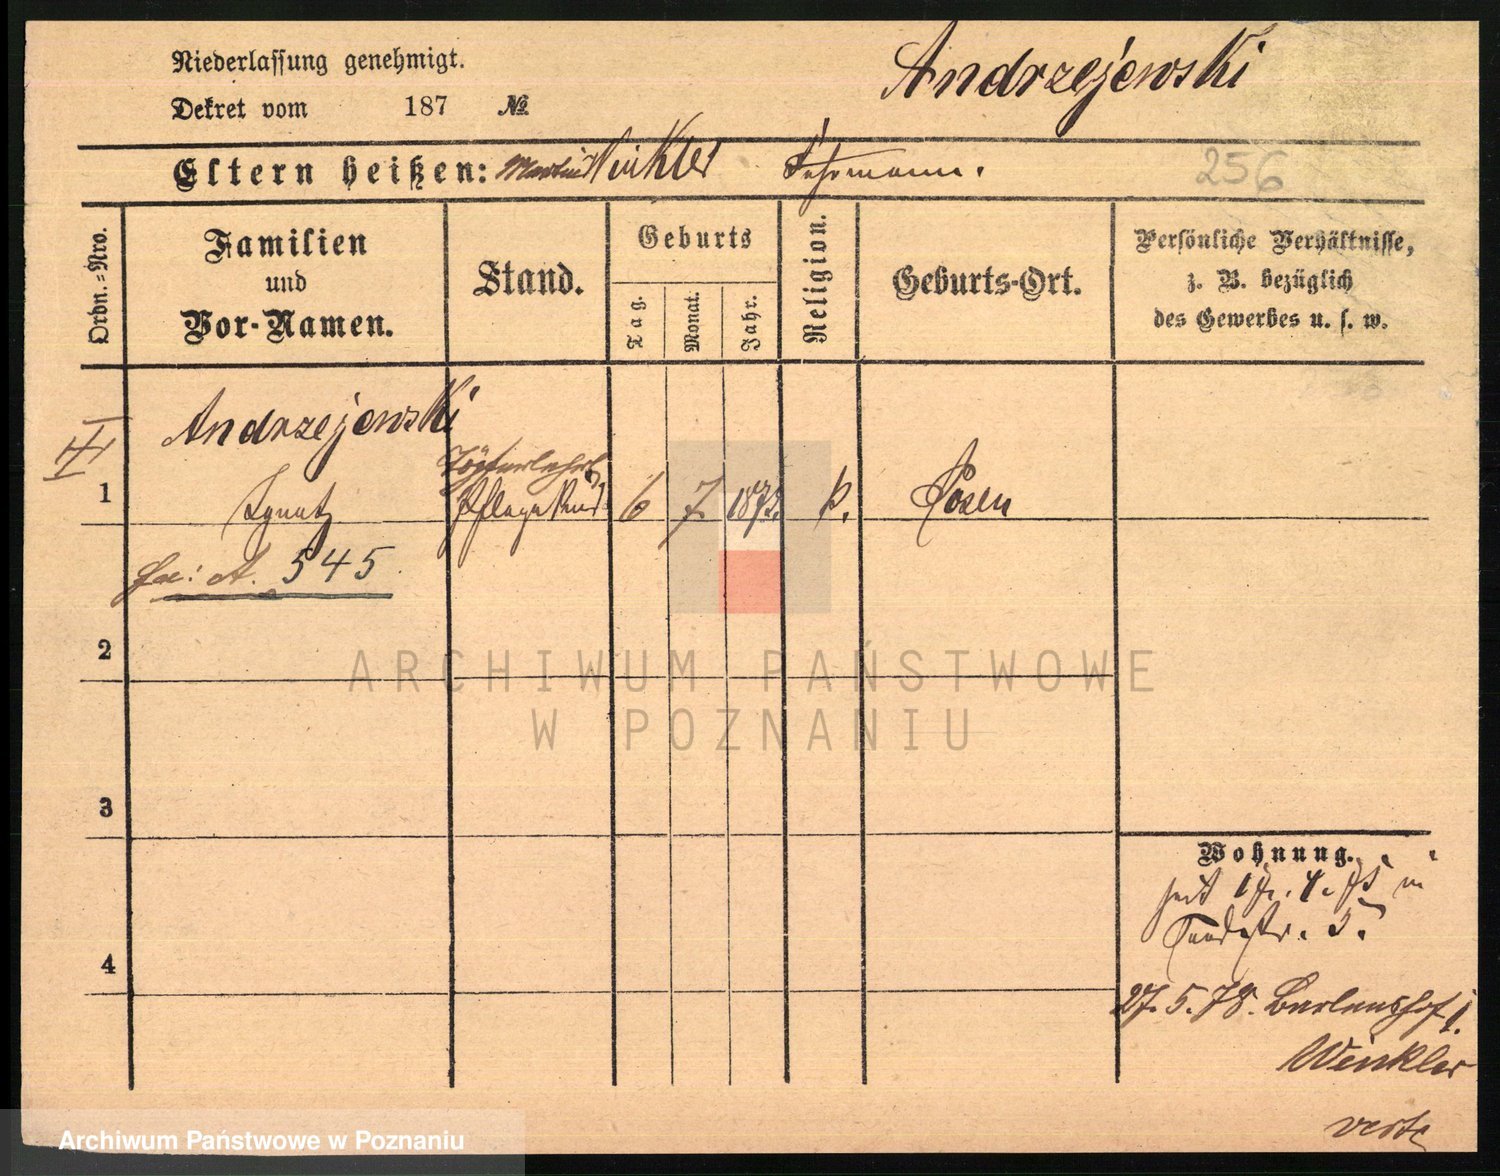 Niederlassung genehmigt.
Andrzejewski
Dekret vom 187 №
Eltern heißen: Martin Winkler Fuhrmann.
256
Ordn.=Nro.
Familien
und
Vor-Namen.
Stand.
Geburts
Tag.
Monat.
Jahr.
Religion.
Geburts-Ort.
Persönliche Verhältnisse,
z. B. bezüglich
des Gewerbes u. s. w.
Andrzejewski
Töpferlehrl.
1 Ignatz Pflegekind 6 7 1873. k. Posen
A. 545
2
3
Wohnung.
seit 17. 4. 75 in
Sandstr. 5.
4
27. 5. 78. Berlinershof 1.
Winkler
verte
ARCHIWUM PAŃSTWOWE
W POZNANIU
Archiwum Państwowe w Poznaniu